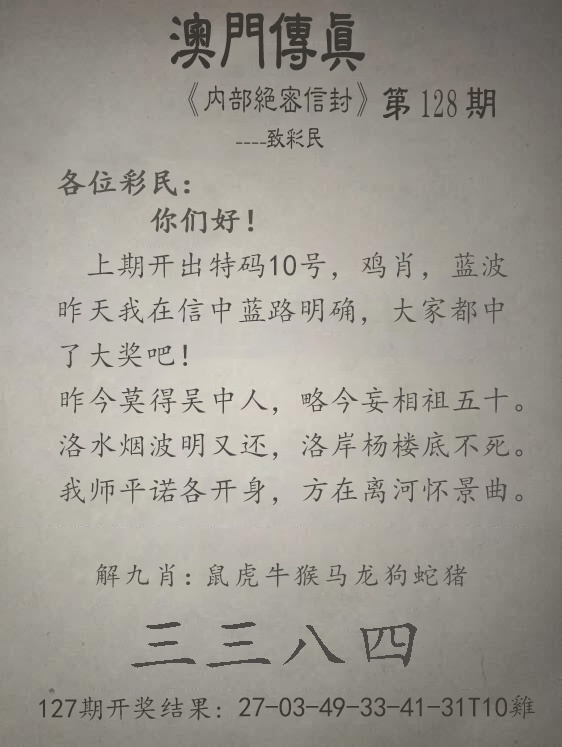 澳門傳眞
《内部絕密信封》第128期
----致彩民
各位彩民：
你们好！
上期开出特码10号，鸡肖，蓝波
昨天我在信中蓝路明确，大家都中
了大奖吧！
昨今莫得吴中人，略今妄相祖五十。
洛水烟波明又还，洛岸杨楼底不死。
我师平诺各开身，方在离河怀景曲。
解九肖：鼠虎牛猴马龙狗蛇猪
三三八四
127期开奖结果：27-03-49-33-41-31T10雞